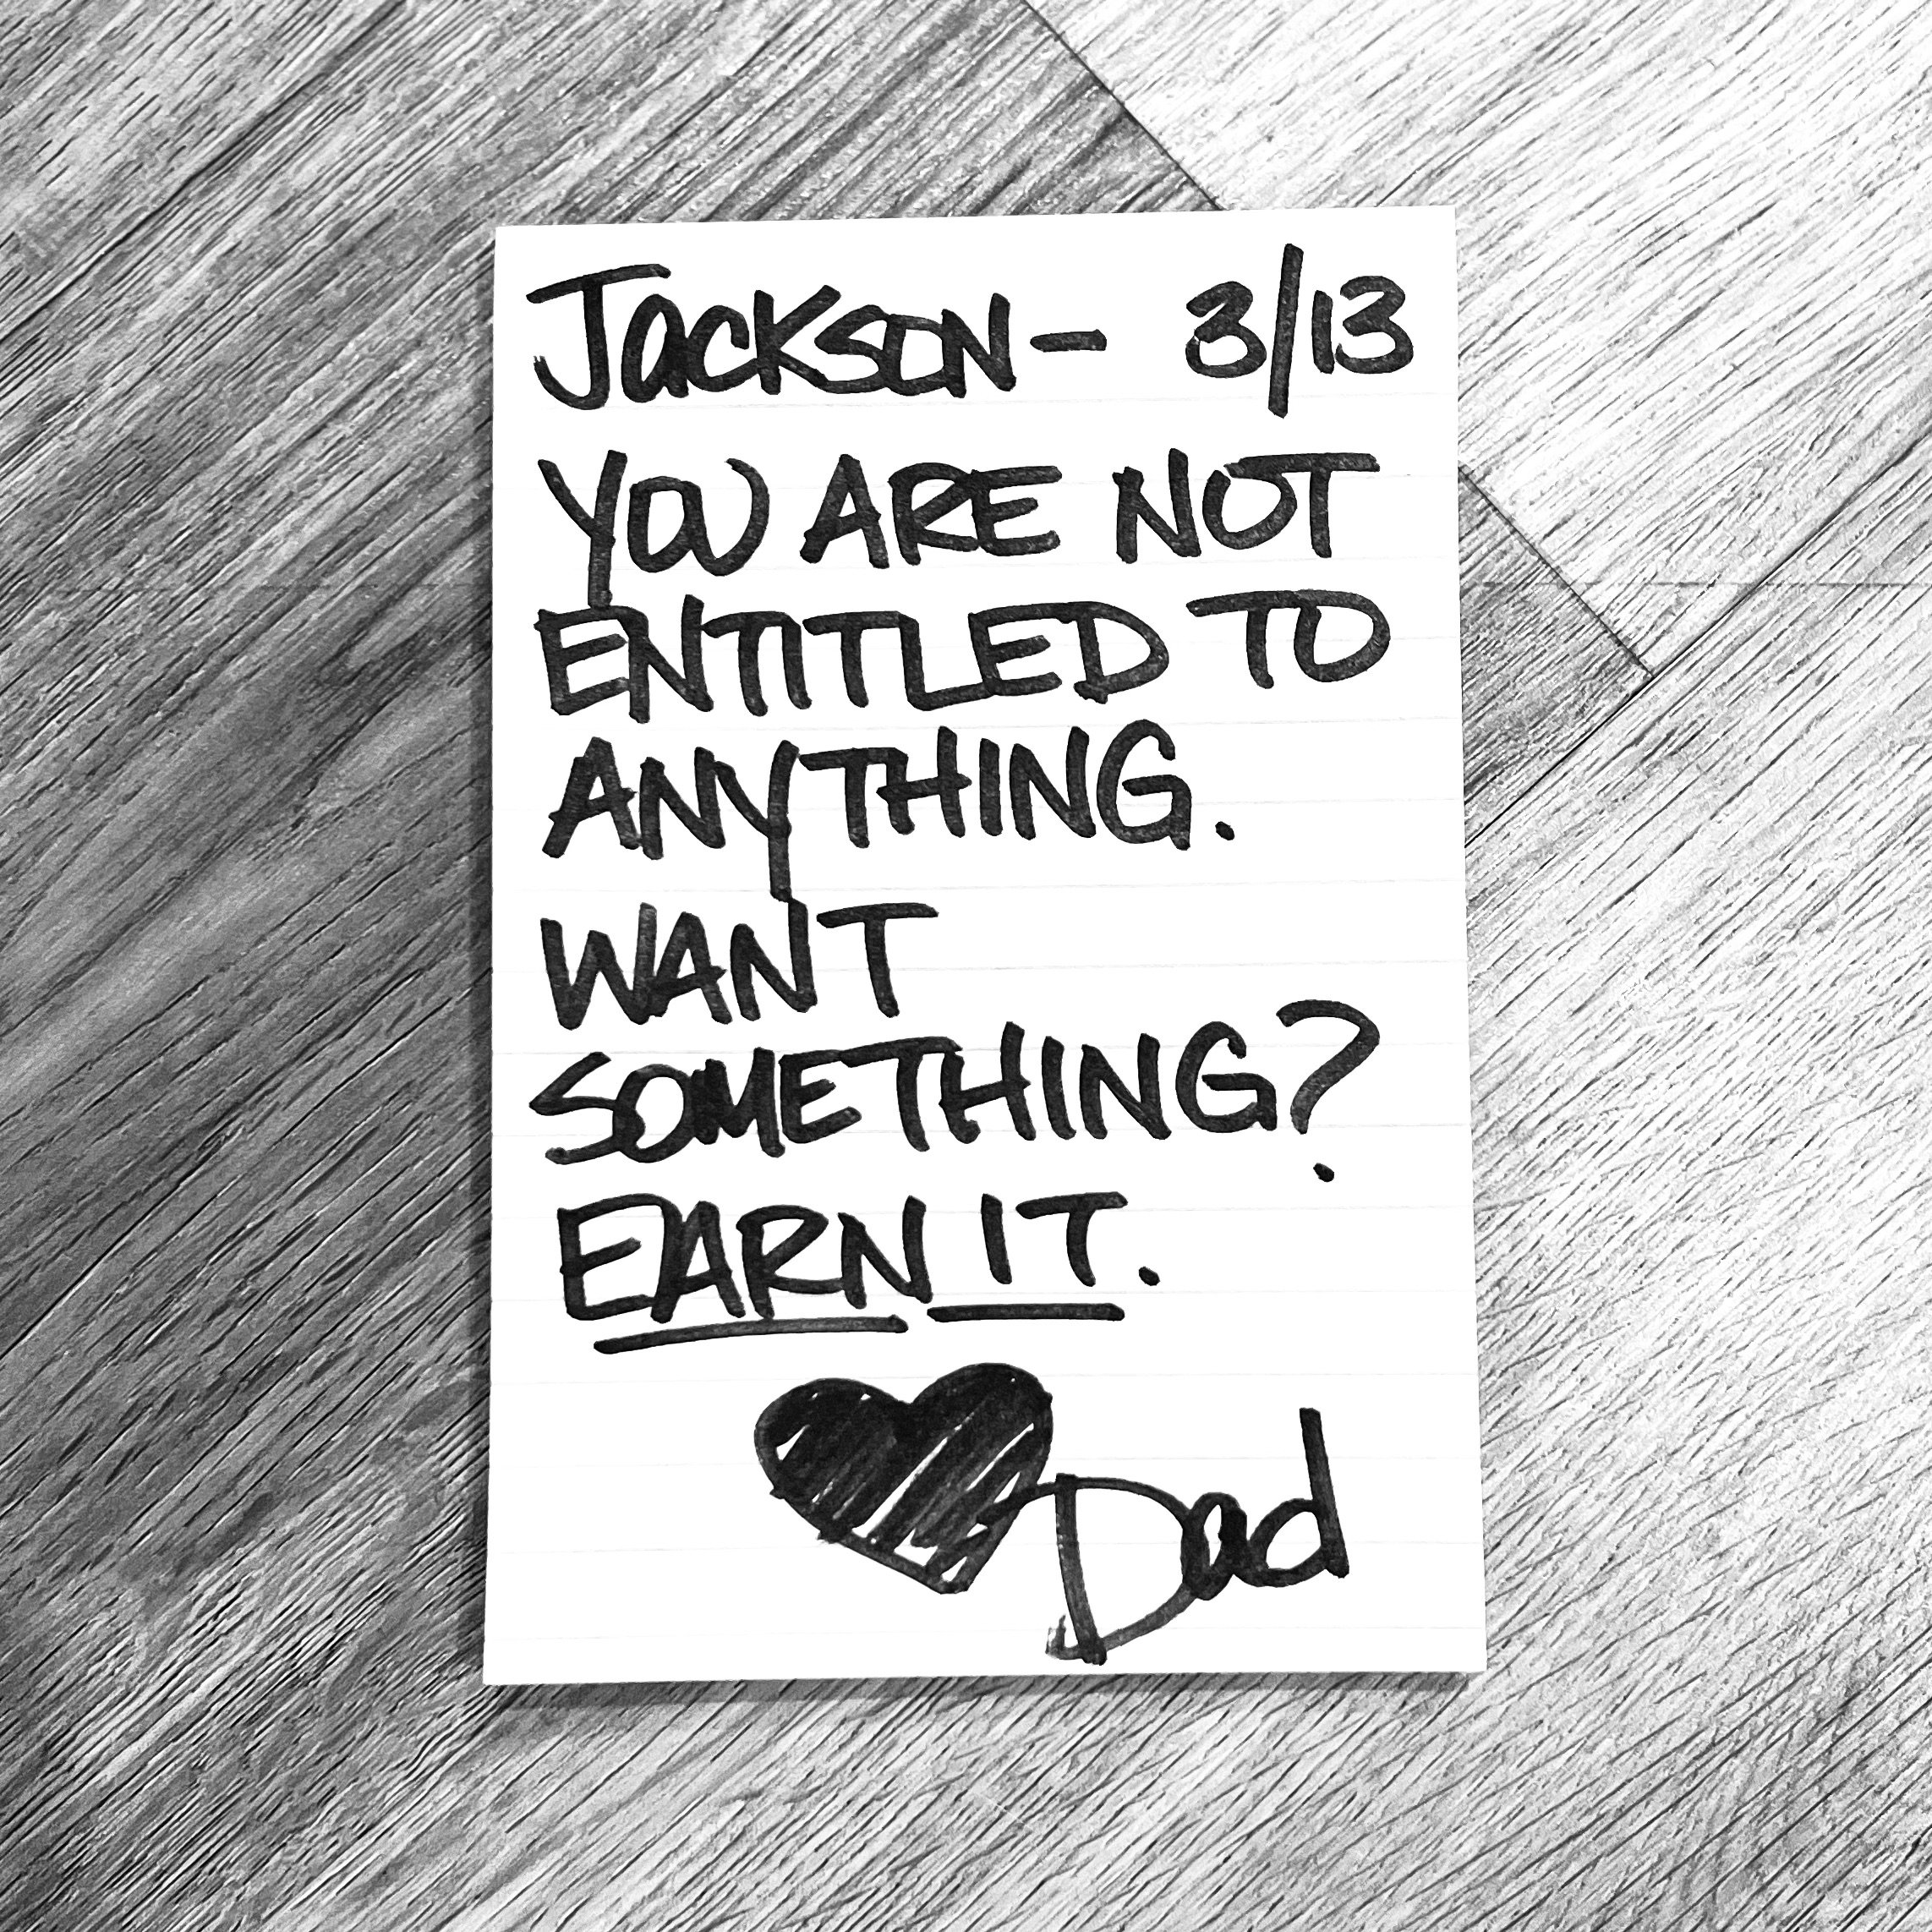 Jackson- 3/13
YOU ARE NOT
ENTITLED TO
ANYTHING.
WANT
SOMETHING?
EARN IT.
♥ Dad